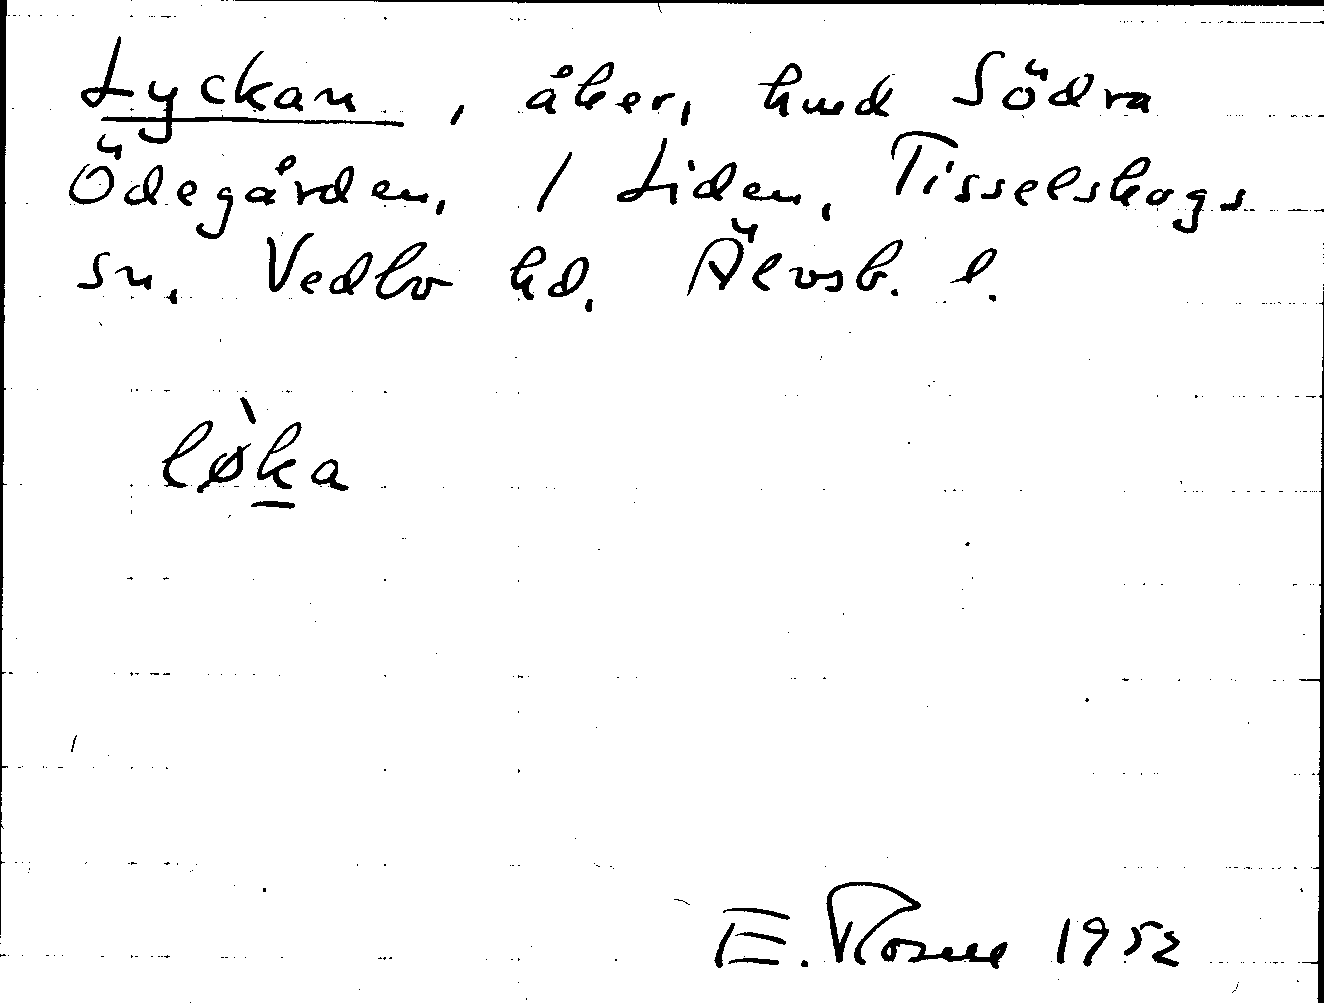 Lyckan, åker, hmd Södra
Ödegården, 1 Liden, Tisselskogs
sn. Vedbo hd. Älvsb. l.
lø̀ka
E. Rosell 1952